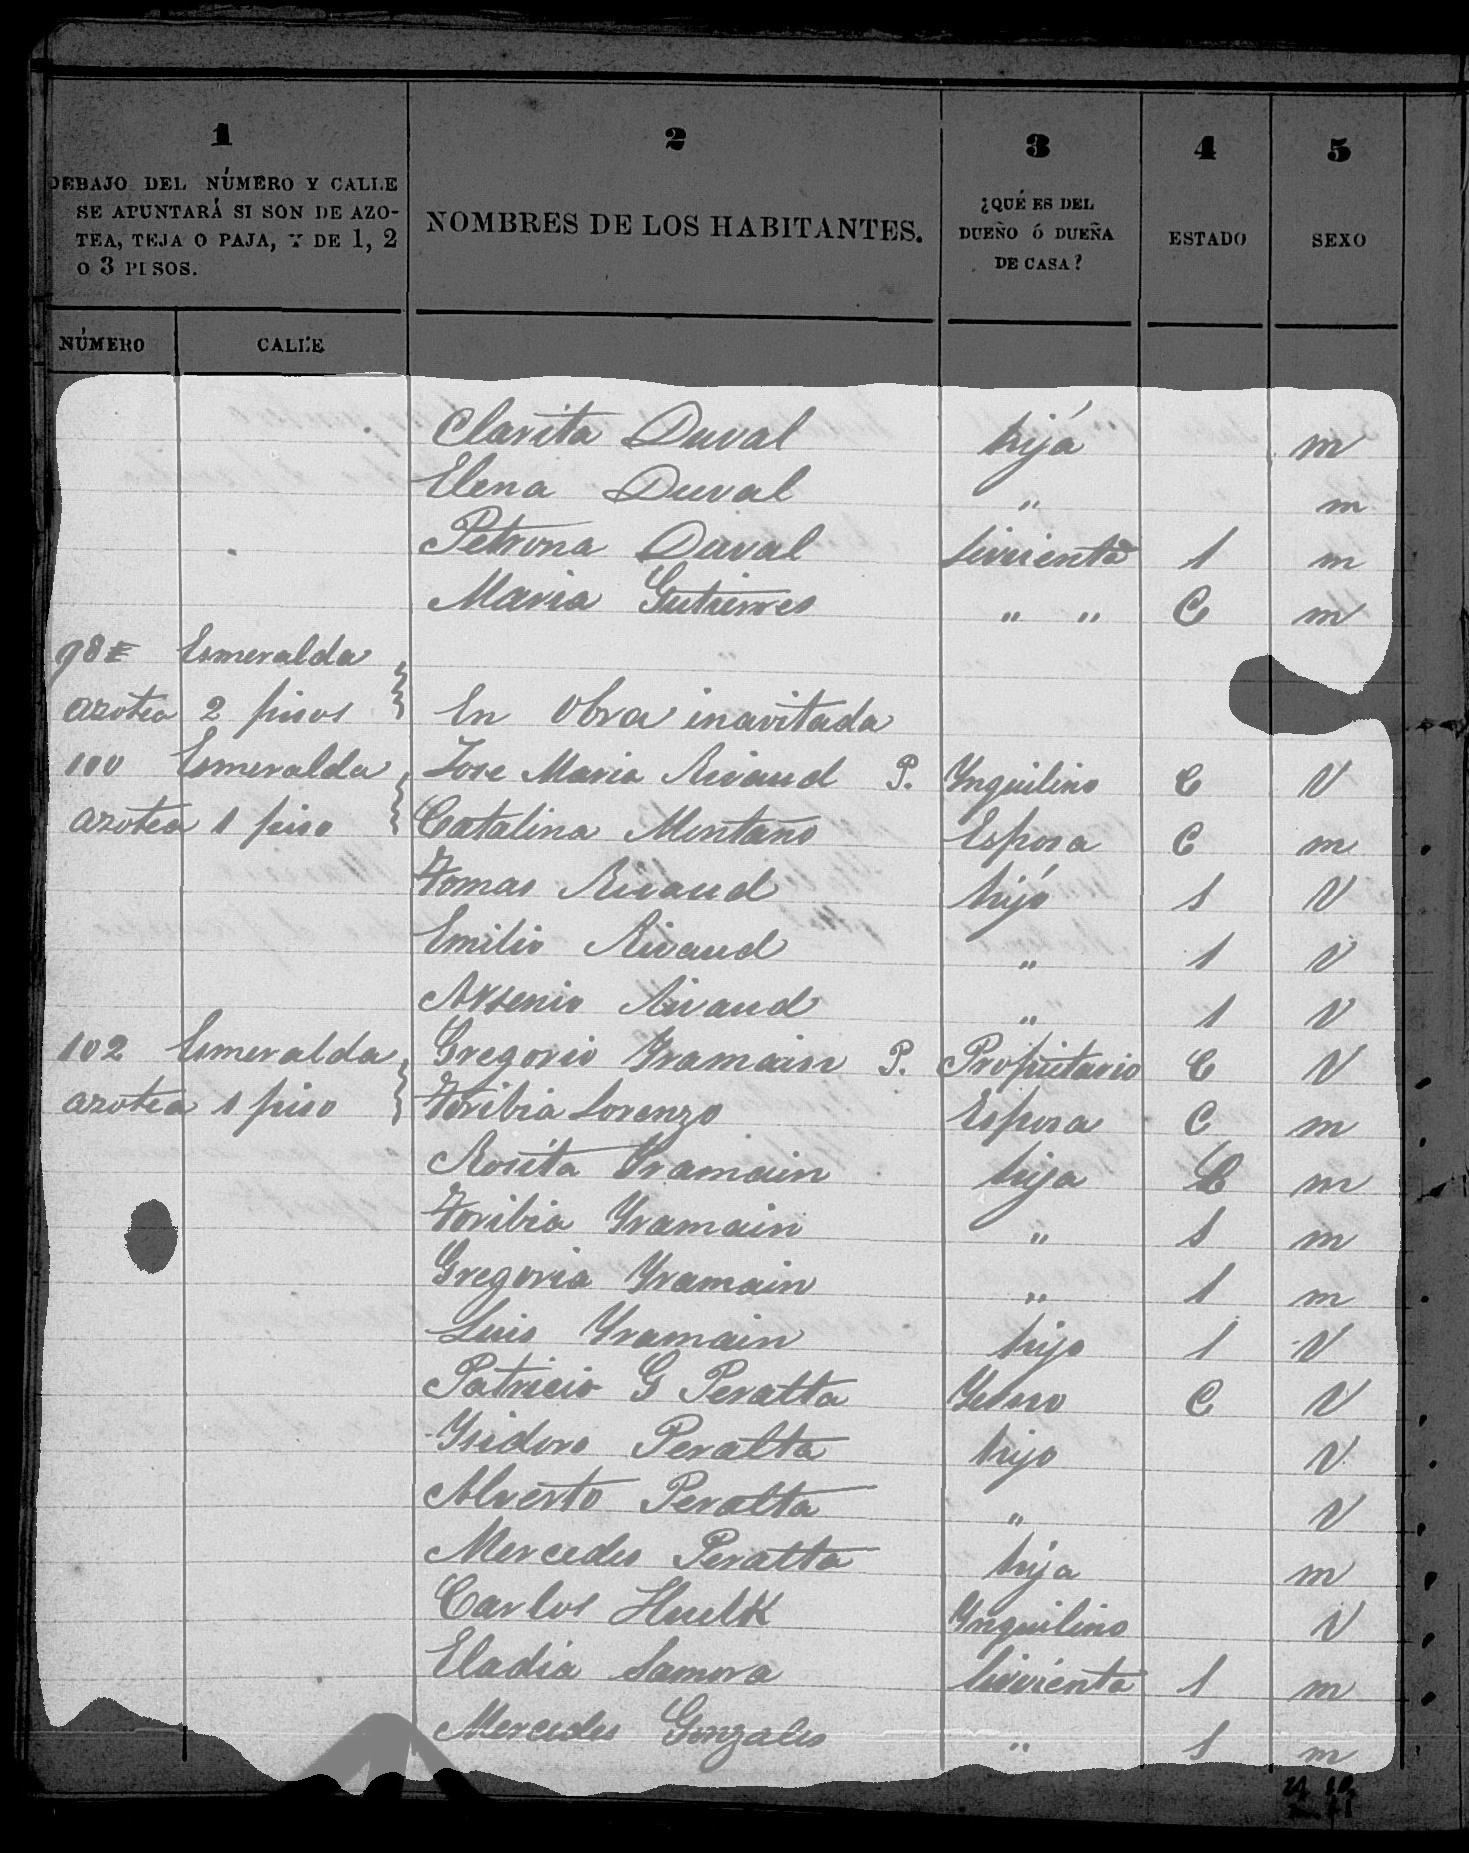 1 2 3 4 5
DEBAJO DEL NÚMERO Y CALLE
SE APUNTARÁ SI SON DE AZO-
TEA, TEJA O PAJA, Y DE 1, 2
O 3 PISOS.
NOMBRES DE LOS HABITANTES.
¿QUÉ ES DEL
DUEÑO Ó DUEÑA
DE CASA?
ESTADO
SEXO
NÚMERO CALLE
Clarita Duval hija m
Elena Duval " m
Petrona Duval Sirvienta S m
Maria Gutierres " " C m
98 Esmeralda
azotea 2 pisos En obra inavitada
100 Esmeralda Jose Maria Rivaud P. Ynquilino C V
azotea 1 piso Catalina Montaño Esposa C m
Tomas Rivaud hijo S V
Emilio Rivaud " S V
Arsenio Rivaud " S V
102 Esmeralda Gregorio Yramain P. Propietario C V
azotea 1 piso Toribia Lorenzo Esposa C m
Rosita Yramain hija C m
Toribia Yramain " S m
Gregoria Yramain " S m
Luis Yramain hijo S V
Patricio G Peralta Yerno C V
Ysidoro Peralta hijo V
Alverto Peralta " V
Mercedes Peralta hija m
Carlos Ynquilino V
Eladia Samora Sirvienta S m
Mercedes Gonzales " S m